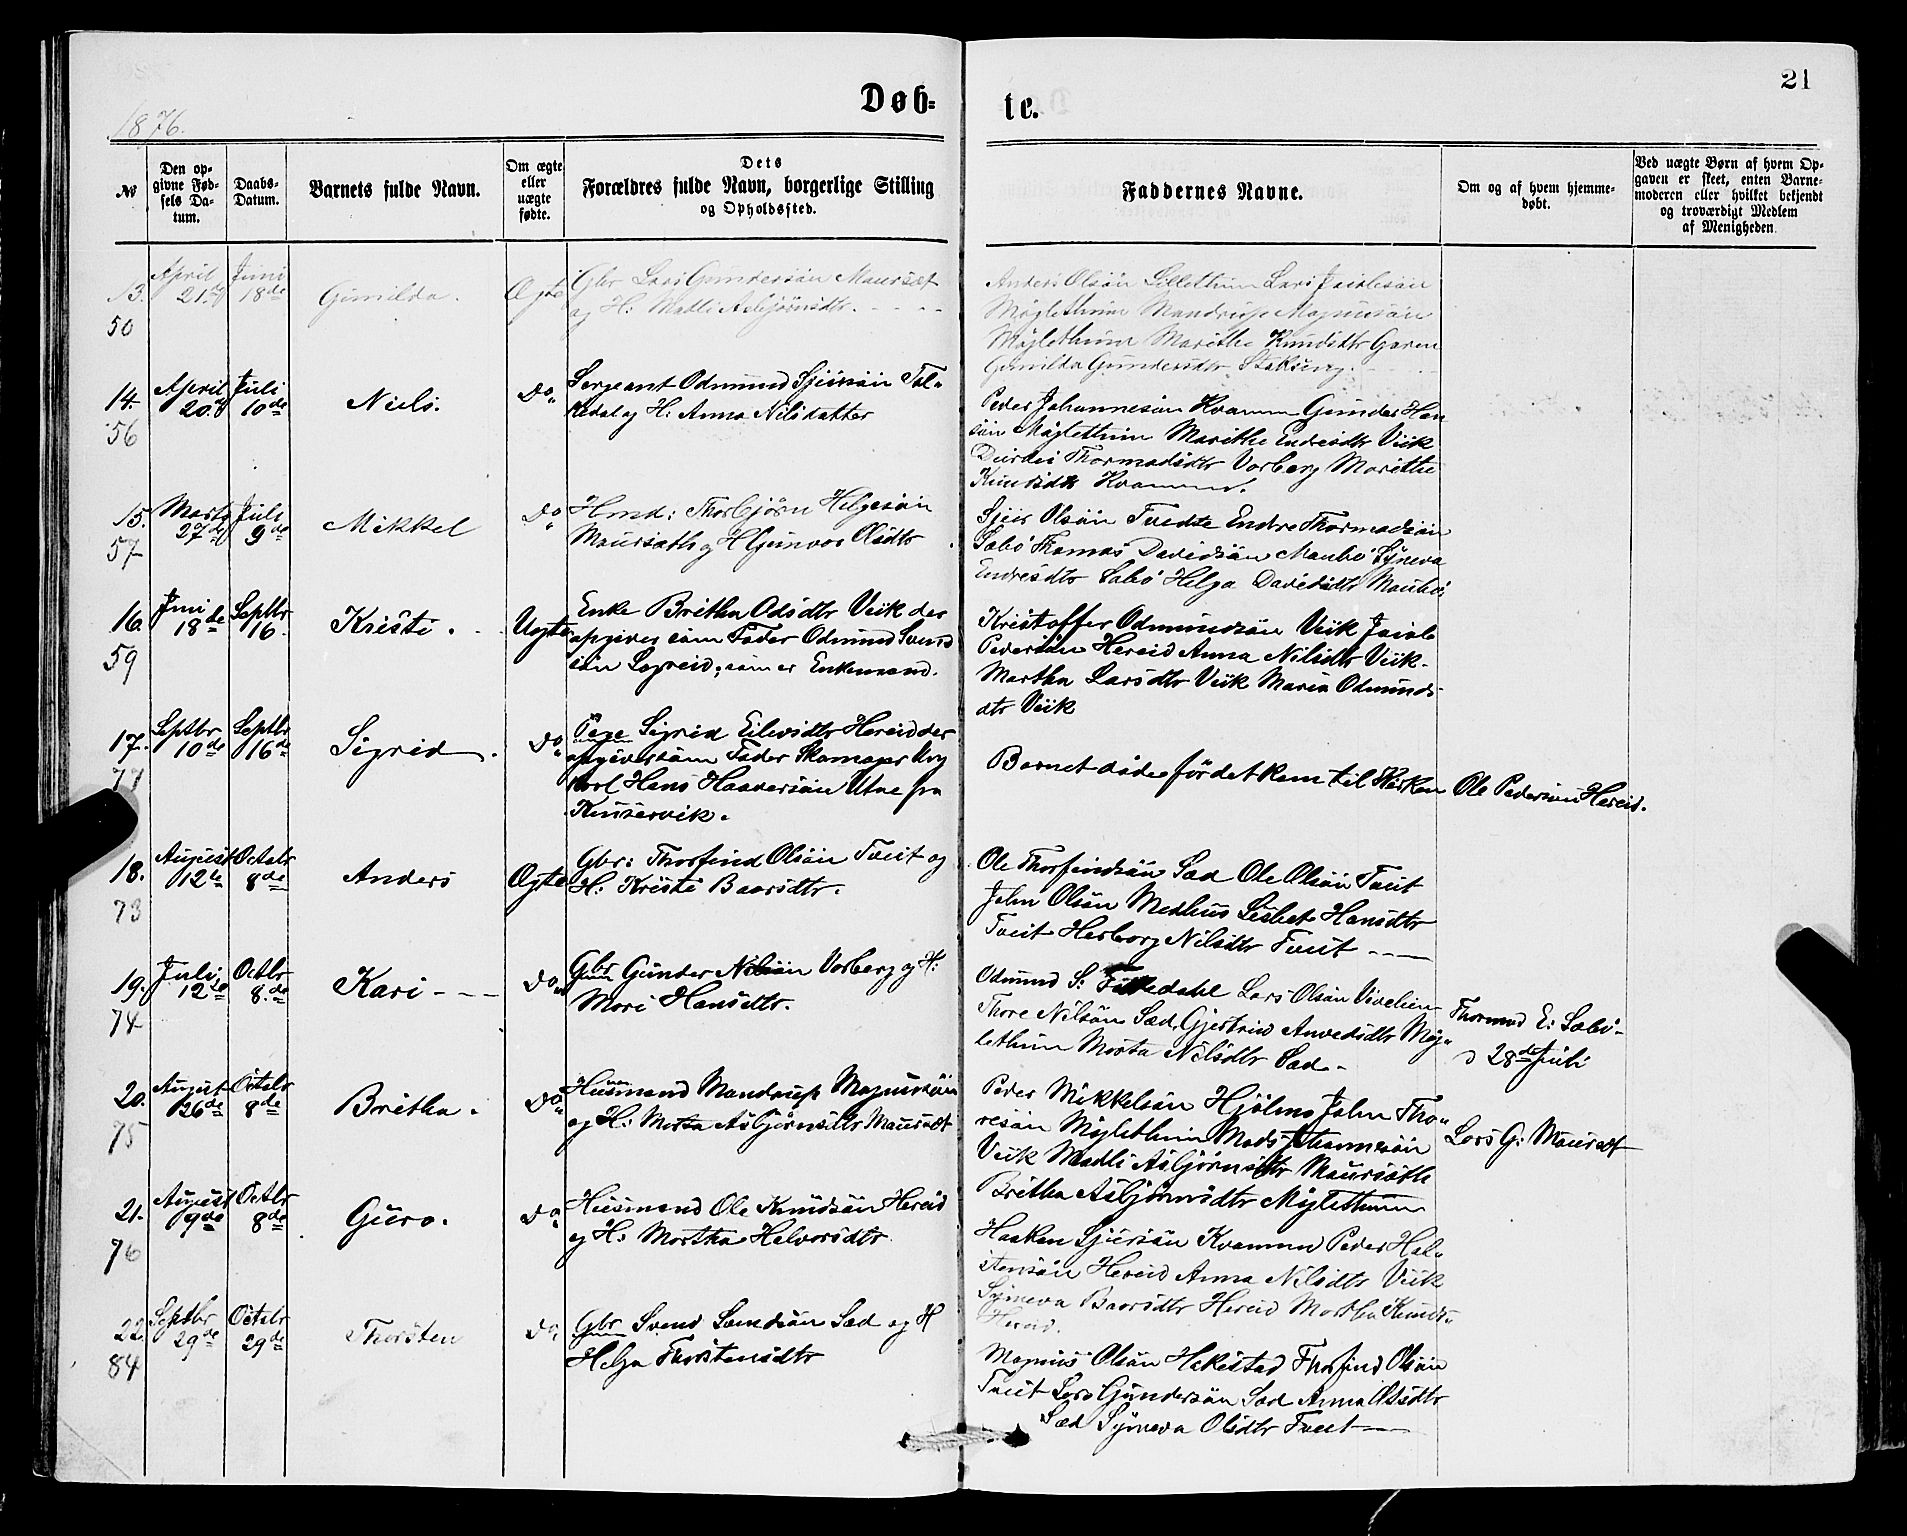 21
Døb=
te.
1876.
№
Den op-
givne Fød-
sels Da-
tum.
Daabs-
Datum.
Barnets fulde Navn.
Om ægte
eller
uægte
fødte.
Dets
Forældres fulde Navn, borgerlige Stilling
og Opholdssted.
Faddernes Navne.
Om og af hvem hjemme-
døbt.
Ved uægte Børn af hvem Op-
gaven er skeet, enten Barne-
moderen eller hvilket bekjendt
og troværdigt Medlem
af Menigheden.
13.
50
April
21de
Juni
18de
Gunilda.
Ægte
Gbr Lars Gundersøn Maursæt
og H: Madli Asbjørnsdtr.
Anders Olsøn Lillethun Lars Jacobsøn
Møglethun Mandrup Magnusøn
Møglethun Marithe Knudsdtr Garen
Gunilda Gundersdtr
14.
56
April
20de
Juli
10de
Niels.
Do
Sergeant Odmund Sjursøn Fol-
kedal og H: Anna Nilsdatter
Peder Johannesøn Kvamm Gunder Han
søn Møglethun Marithe Endresdtr Viik
Thormodsdtr Varberg Marithe
Knudsdtr Kvamm.
15.
57
Marts
27de
Juli
9de
Mikkel
Do
Hmd: Thorbjørn Helgesøn
Maursæth og H Gunvor Olsdtr
Sjur Olsøn Tvedte Endre Thormodsøn
Sæbø Thomas Davidsøn Maubø Syneva
Endresdtr Sæbø Helga Davidsdtr Maubø
16.
59
Juni
18de
Septbr
16
Kristi.
Uægte
Enke Britha Odsdtr Viik der
opgiver som Fader Odmund Svend
søn Legreid, som er Enkemand.
Kristoffer Odmundsøn Viik Jacob
Pedersøn Hereid Anna Nilsdtr Viik
Martha Larsdtr Viik Maria Odmunds-
dtr Viik
17.
77
Septbr
10de
Septbr
16de
Sigrid
Do
Pige Sigrid Eilevsdtr Hereid der
opgiver som Fader Skomager Ung
karl Hans Haaversøn Utne fra
Kinservik.
Barnet døde før det kom til Kirken
Ole Pedersøn Hereid.
18.
73
August
12te
Octobr
8de
Anders
Ægte
Gbr: Thorfind Olsøn Tveit og
H. Kristi Baarsdtr.
Ole Thorfindsøn Sæd Ole Olsøn Tveit
John Olsøn Medhus Lisbet Hansdtr
Tveit Herborg Nilsdtr Tveit
19.
74
Juli
12te
Octbr
8de
Kari
Do
Gbr Gunder Nilsøn Varberg og H:
Mari Hansdtr.
Odmund S: Folkedahl Lars Olsøn Vivelien
Thore Nilsøn Sæd, Gjertrud Anvedsdtr Møg-
lethun Marta Nilsdtr Sæd
Thormod E: Sæbø
28de Juli
20.
75
August
26de
Octobr
8de
Britha.
Do
Husmand Mandrup Magnusøn
og H: Marta Asbjørnsdtr Maursæt
Peder Mikkelsøn Hjølmo John Tho-
resøn Møglethun Mads Johannesøn
Viik Madli Asbjørnsdtr Maursæth
Britha Asbjørnsdtr Møglethun
Lars G: Maursæt
21.
76
August
9de
Octbr
8de
Guro.
Do
Husmand Ole Knudsøn Hereid
og H: Martha Halvorsdtr
Haaken Sjursøn Kvammen Peder Hal-
stensøn Hereid Anna Nilsdtr Viik
Syneva Baarsdtr Hereid Martha Knuds-
Hereid.
22.
84
Septbr
29de
Octobr
29de
Thorsten
Do
Gbr Svend Samsøn Sæd og H
Helga Thorstensdtr
Magnus Olsøn Hakestad Thorfind Olsøn
Tveit Lars Gundersøn Sæd Anna Olsdtr
Sæd Syneva Olsdtr Tveit